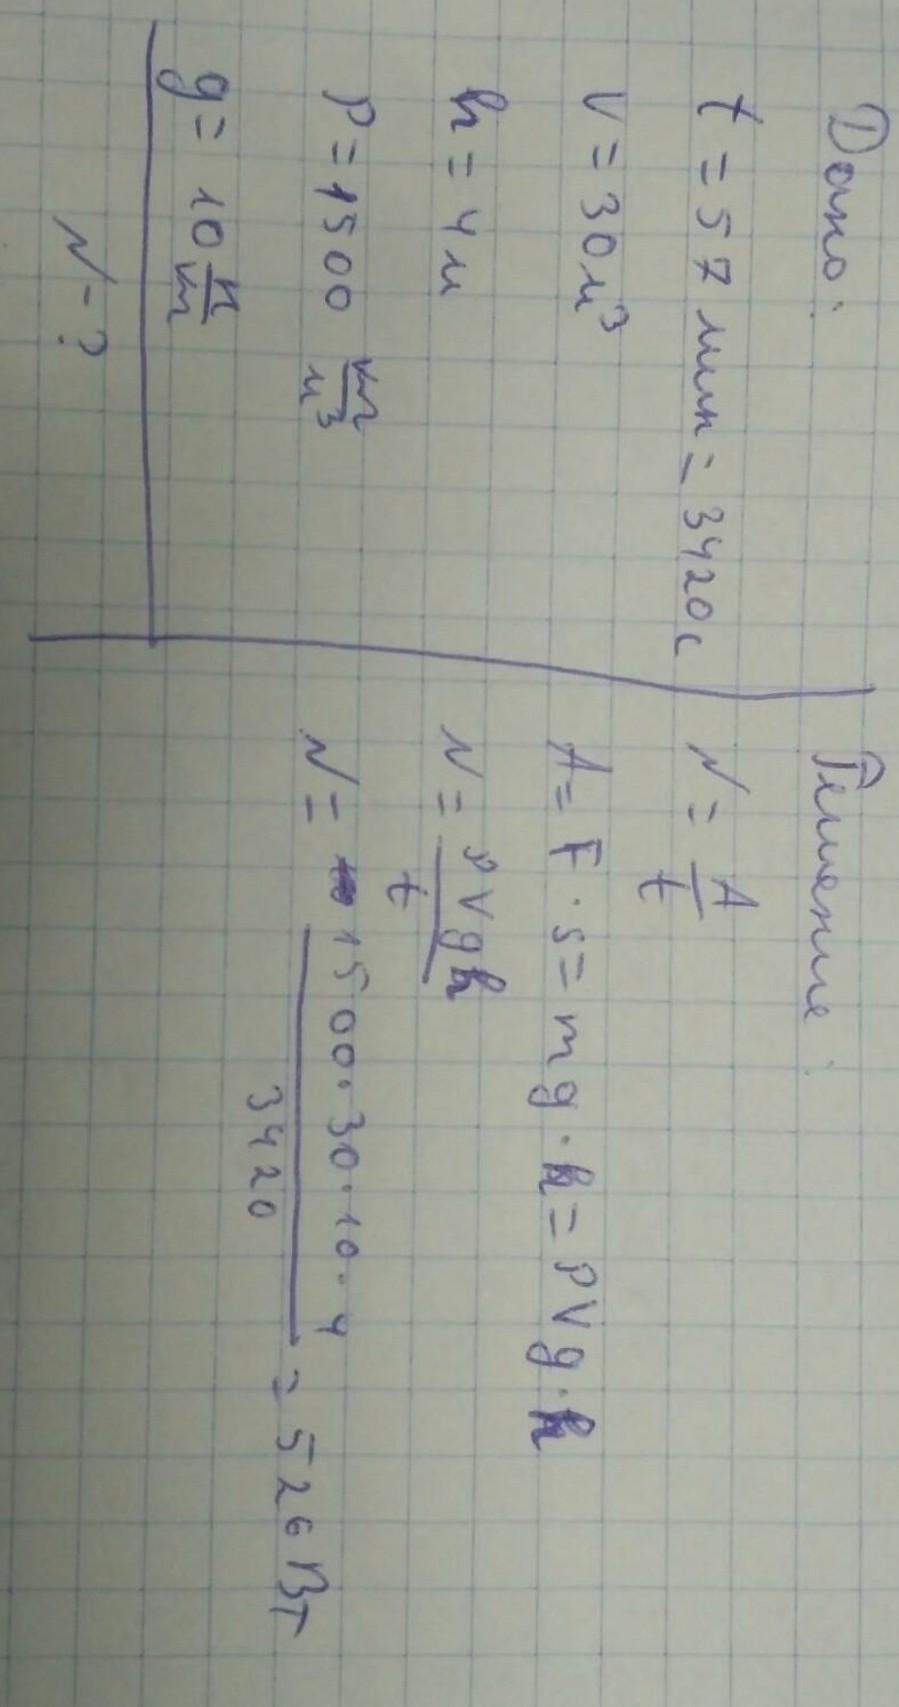 Дано:
t = 57 мин = 3420с
V = 30 м³
h = 4 м
ρ = 1500 кг/м³
g = 10 н/кг
N - ?
Решение:
N = A/t
A = F · s = mg · h = ρVg · h
N = ρVgh/t
N = 1500 · 30 · 10 · 4/3420 = 526 Вт